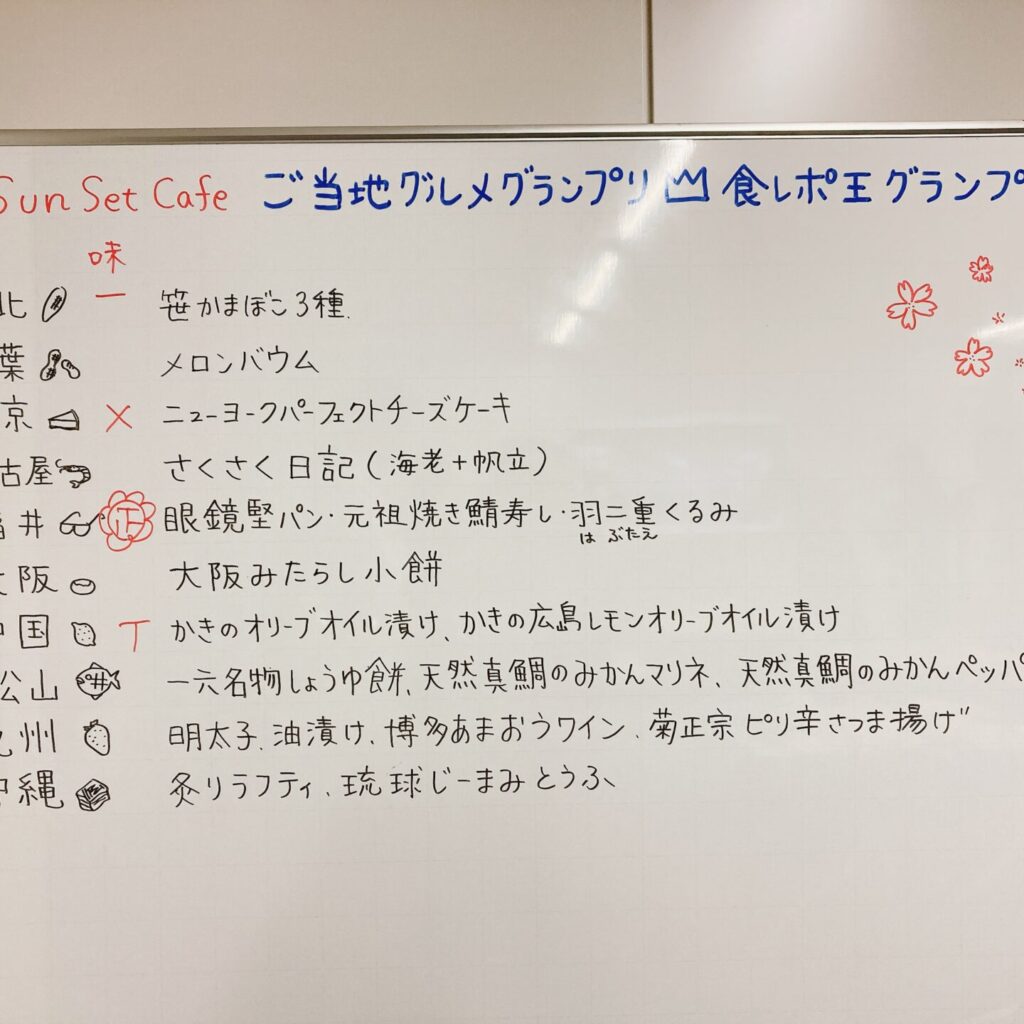 Sun Set Cafe ご当地グルメグランプリ 食レポ王グランプ
味
北 一 笹かまぼこ3種.
葉 メロンバウム
京 × ニューヨークパーフェクトチーズケーキ
古屋 さくさく日記(海老+帆立)
井 正 眼鏡堅パン・元祖焼き鯖寿し・羽二重くるみ
は ぶたえ
阪 大阪みたらし小餅
国 T かきのオリーブオイル漬け、かきの広島レモンオリーブオイル漬け
松山 一六名物しょうゆ餅、天然真鯛のみかんマリネ、天然真鯛のみかんペッパ
州 明太子、油漬け、博多あまおうワイン、菊正宗ピリ辛さつま揚げ
縄 炙りラフティ、琉球じーまみとうふ、